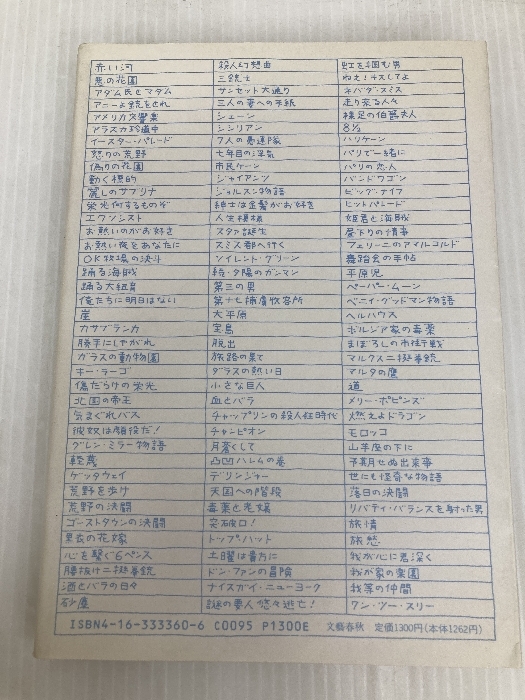 赤い河
悪の花園
アダム氏とマダム
アニーよ銃をとれ
アメリカ交響楽
アラスカ珍道中
イースター・パレード
怒りの荒野
偽りの花園
動く標的
麗しのサブリナ
栄光何するものぞ
エクソシスト
お熱いのがお好き
お熱い夜をあなたに
OK牧場の決斗
踊る海賊
踊る大紐育
俺たちに明日はない
崖
カサブランカ
勝手にしやがれ
ガラスの動物園
キー・ラーゴ
傷だらけの栄光
北国の帝王
気まぐれバス
彼奴は顔役だ!
グレン・ミラー物語
軽蔑
ゲッタウェイ
荒野を歩け
荒野の決闘
ゴーストタウンの決闘
黒衣の花嫁
心を繋ぐ6ペンス
腰抜け二挺拳銃
酒とバラの日々
砂塵
殺人幻想曲
三銃士
サンセット大通り
三人の妻への手紙
シェーン
シシリアン
7人の愚連隊
七年目の浮気
市民ケーン
ジャイアンツ
ジョルスン物語
紳士は金髪がお好き
人生模様
スタア誕生
スミス都へ行く
ソイレント・グリーン
続・夕陽のガンマン
第三の男
第十七捕虜収容所
大平原
宝島
脱出
旅路の果て
ダラスの熱い日
小さな巨人
血とバラ
チャップリンの殺人狂時代
チャンピオン
月蒼くして
凸凹ハレムの巻
デリンジャー
天国への階段
毒薬と老嬢
突破口!
トップ・ハット
土曜は貴方に
ドン・ファンの冒険
ナイスガイ・ニューヨーク
謎の要人悠々逃亡!
虹を掴む男
ねえ!キスしてよ
ネバダ・スミス
走り来る人々
裸足の伯爵夫人
8½
ハリケーン
パリで一緒に
パリの恋人
バンドワゴン
ビッグ・ナイフ
ヒットパレード
姫君と海賊
昼下りの情事
フェリーニのアマルコルド
舞踏会の手帖
平原児
ペーパー・ムーン
ベニイ・グッドマン物語
ヘルハウス
ボルジア家の毒薬
まぼろしの市街戦
マルクス二挺拳銃
マルタの鷹
道
メリー・ポピンズ
燃えよドラゴン
モロッコ
山羊座の下に
予期せぬ出来事
世にも怪奇な物語
落日の決闘
リバティ・バランスを射った男
旅情
旅愁
我が心に君深く
我が家の楽園
我等の仲間
ワン・ツー・スリー
ISBN4-16-333360-6 C0095 P1300E 文藝春秋 定価1300円(本体1262円)